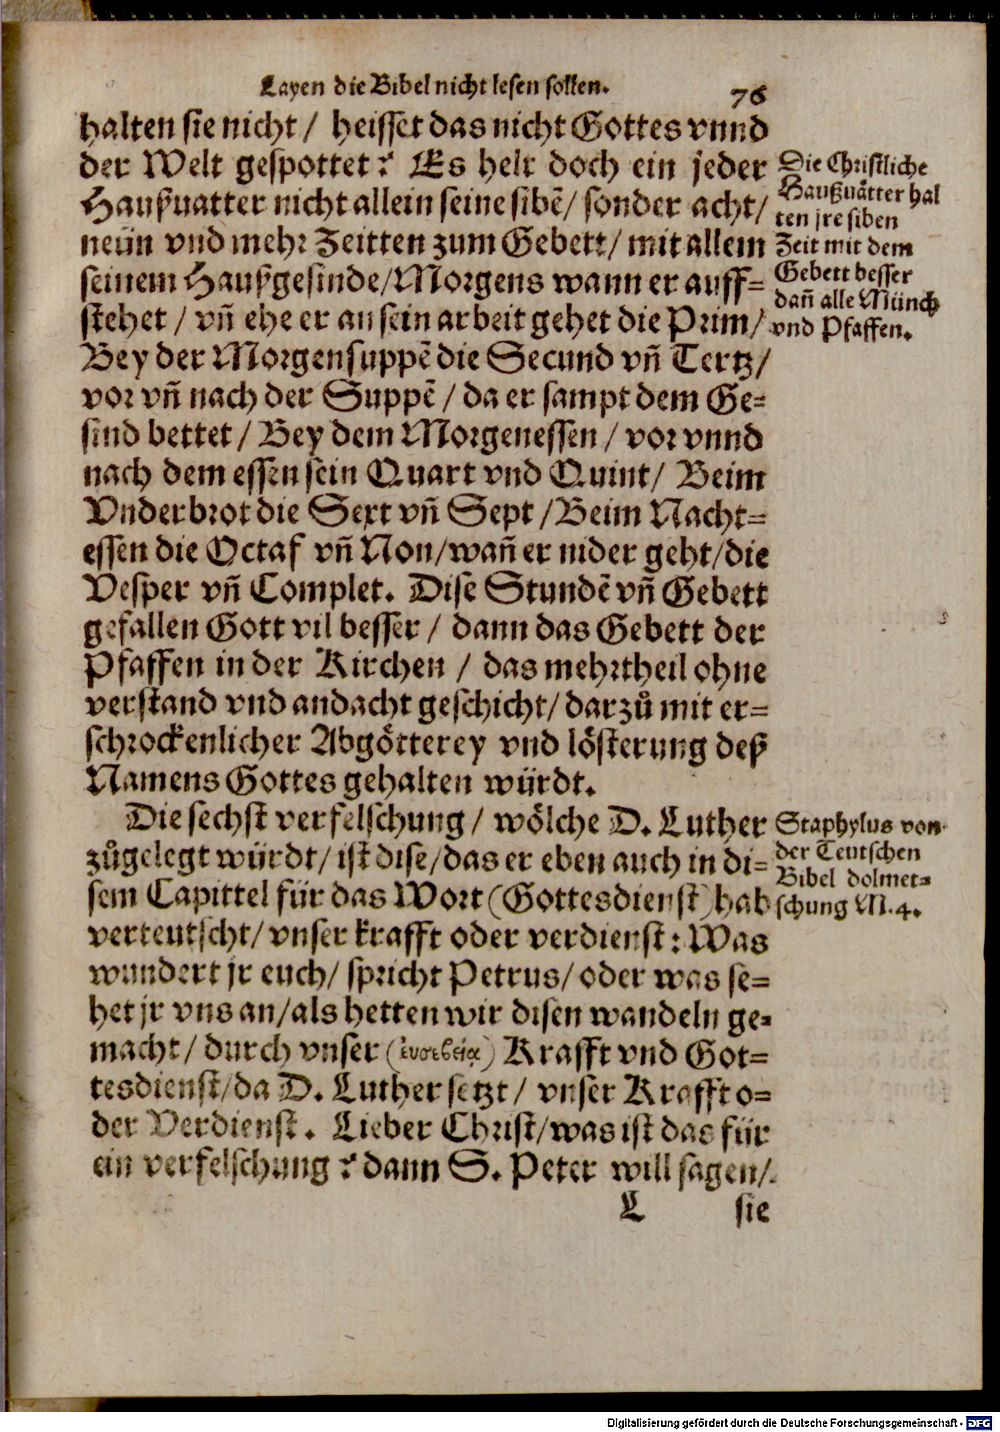 Layen die Bibel nicht lesen sollen.
76
halten sie nicht / heisset das nicht Gottes vnnd
der Welt gespottet? Es helt doch ein jeder
Haußuatter nicht allein seine sibẽ / sonder acht /
neün vnd mehr Zeitten zum Gebett / mit allem
seinem Haußgesinde / Morgens wann er auff=
stehet / vñ ehe er an sein arbeit gehet die Prim /
Bey der Morgensuppẽ die Secund vñ Tertz /
vor vñ nach der Suppẽ / da er sampt dem Ge=
sind bettet / Bey dem Morgenessen / vor vnnd
nach dem essen sein Quart vnd Quint / Beim
Vnderbrot die Sext vñ Sept / Beim Nacht=
essen die Octaf vñ Non / wañ er nider geht / die
Vesper vñ Complet. Dise Stundẽ vñ Gebett
gefallen Gott vil besser / dann das Gebett der
Pfaffen in der Kirchen / das mehrtheil ohne
verstand vnd andacht geschicht / darzů mit er=
schrockenlicher Abgötterey vnd lösterung deß
Namens Gottes gehalten würdt.
Die sechst verfelschung / wölche D. Luther
zůgelegt würdt / ist dise / das er eben auch in di=
sem Capittel für das Wort (Gottesdienst) hab
verteutscht / vnser krafft oder verdienst: Was
wundert jr euch / spricht Petrus / oder was se=
het jr vns an / als hetten wir disen wandeln ge=
macht / durch vnser (ἐυσεβείᾳ) Krafft vnd Got=
tesdienst / da D. Luther setzt / vnser Krafft o=
der Verdienst. Lieber Christ / was ist das für
ein verfelschung? dann S. Peter will sagen /
L sie
Die Christliche
Haußuätter hal
ten jre siben
Zeit mit dem
Gebett besser
dañ alle Münch
vnd Pfaffen.
Staphylus von
der Teutschen
Bibel dolmet=
schung M.4.
Digitalisierung gefördert durch die Deutsche Forschungsgemeinschaft - DFG